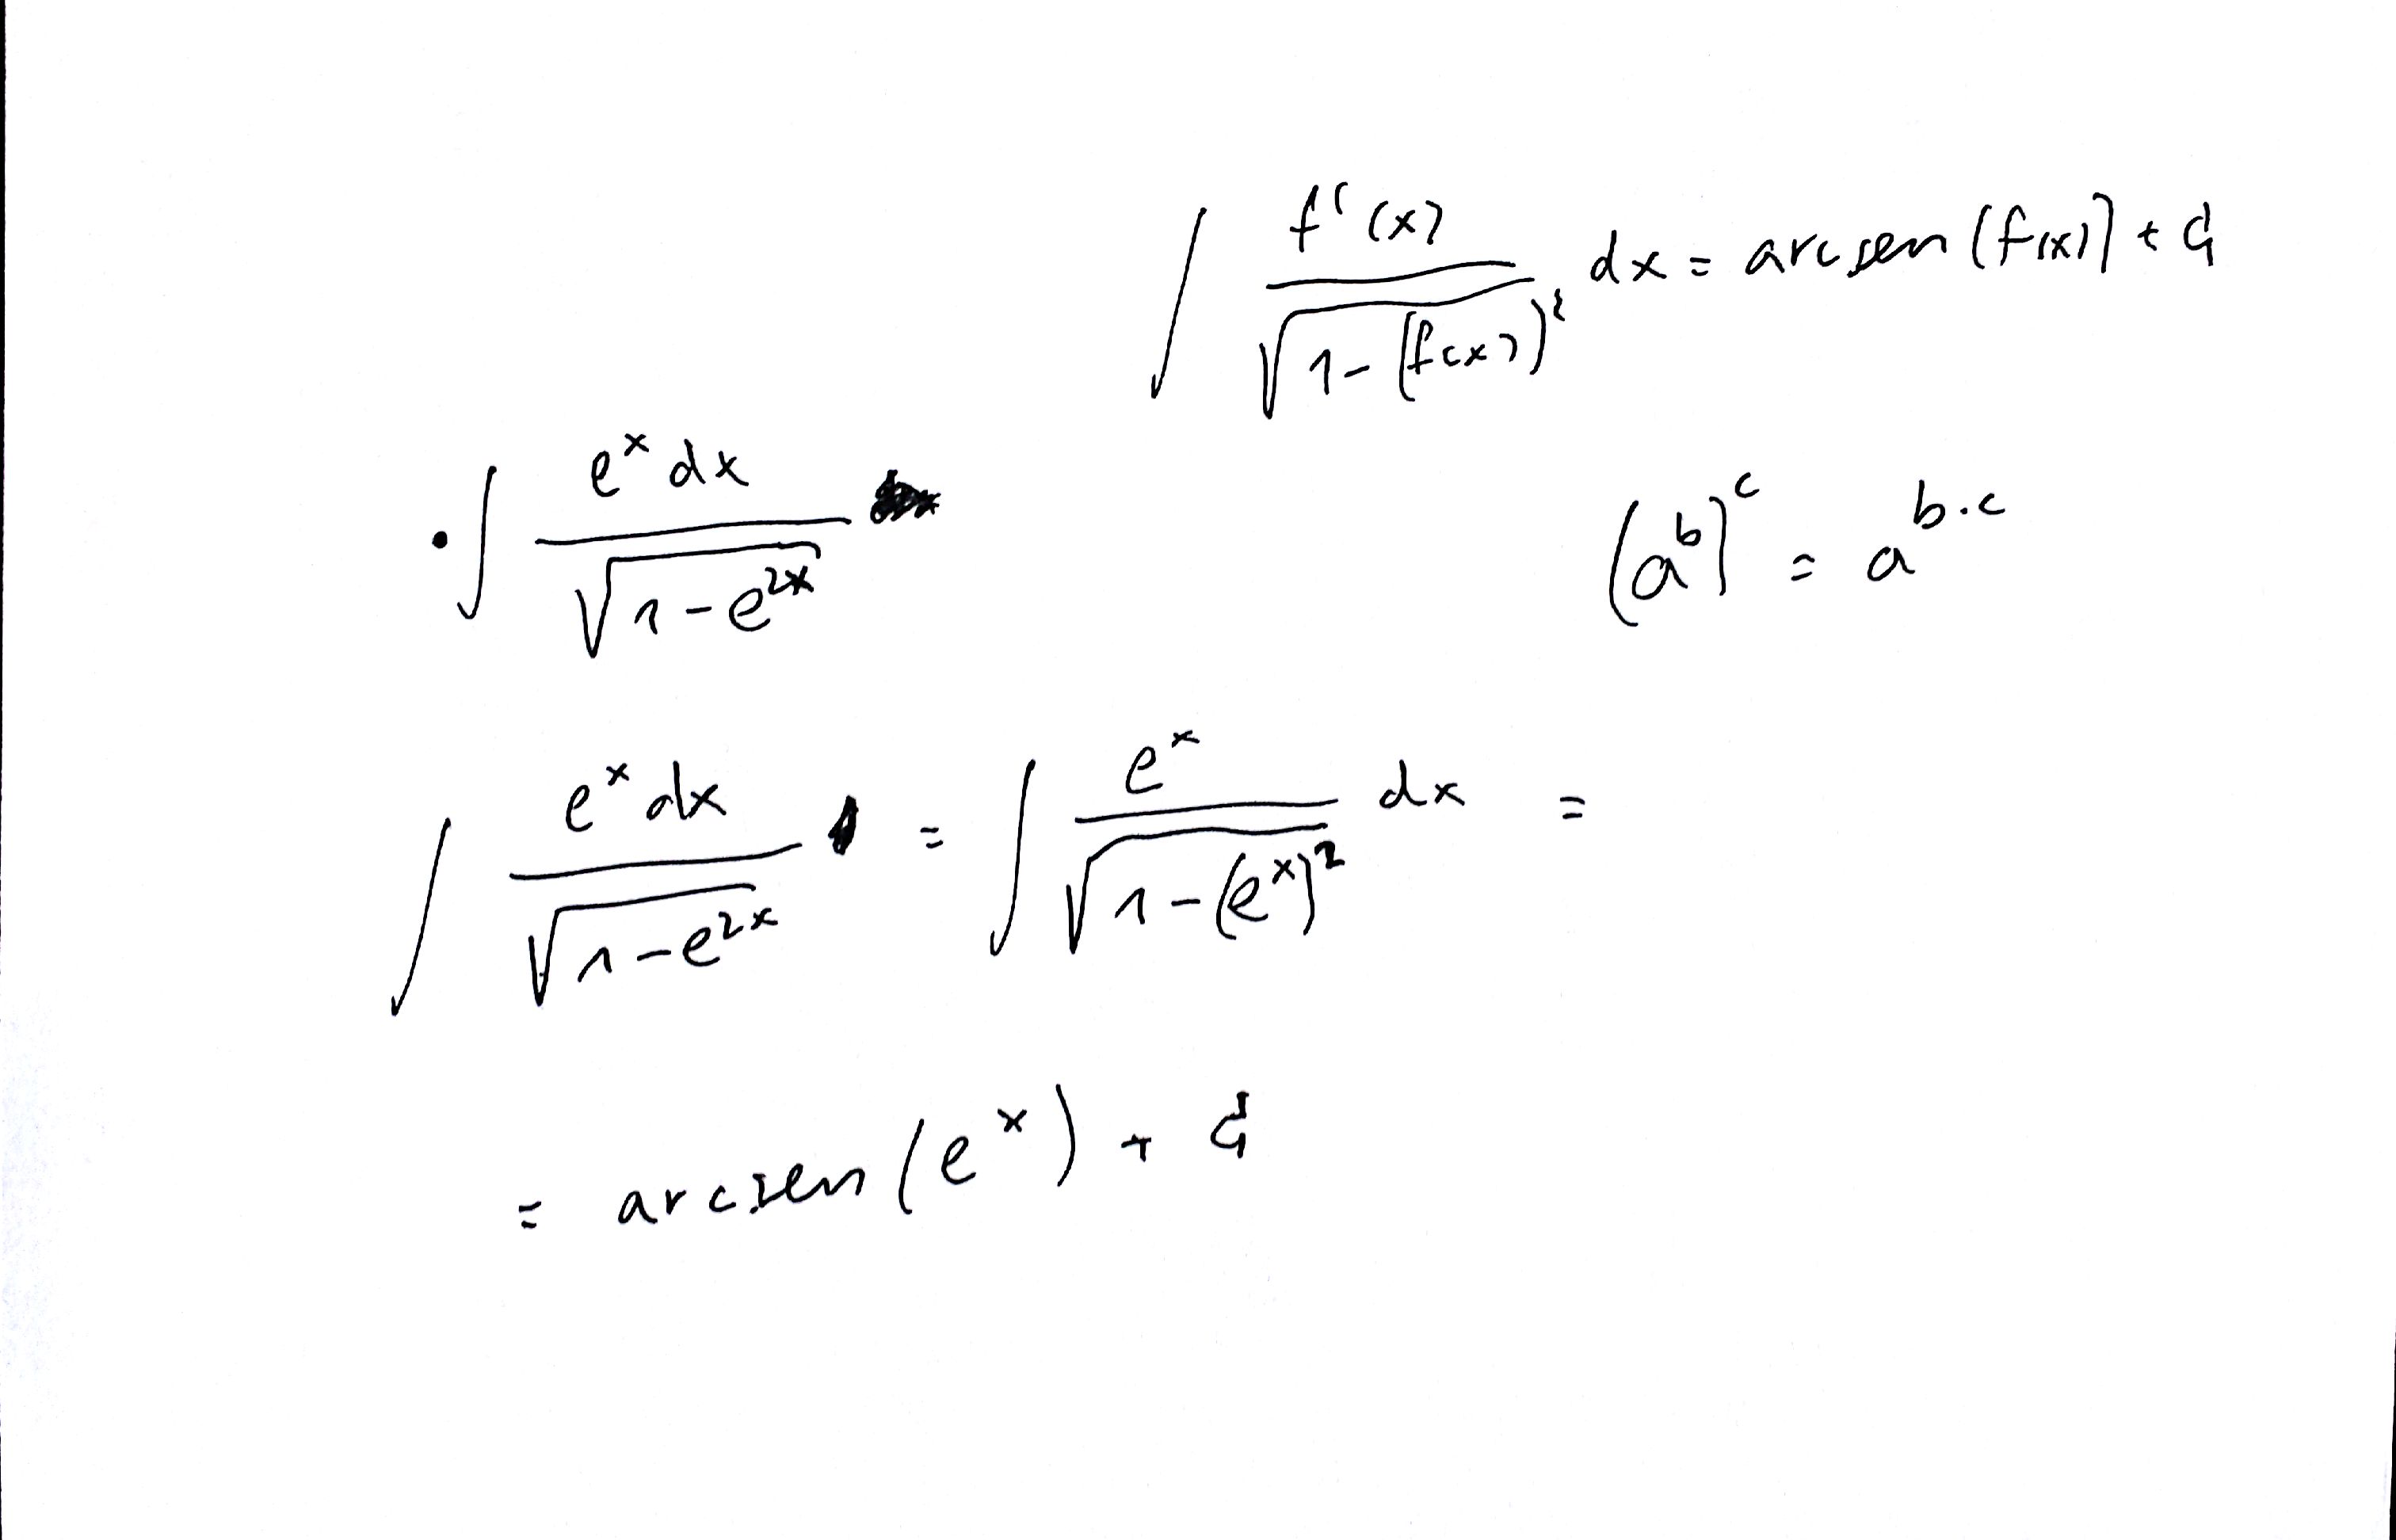 ∫ f'(x) / √(1-(f(x))²) dx = arcsen (f(x)) + C
• ∫ e^x dx / √(1-e^(2x))
(a^b)^c = a^(b·c)
∫ e^x dx / √(1-e^(2x)) = ∫ e^x / √(1-(e^x)²) dx =
= arcsen (e^x) + C